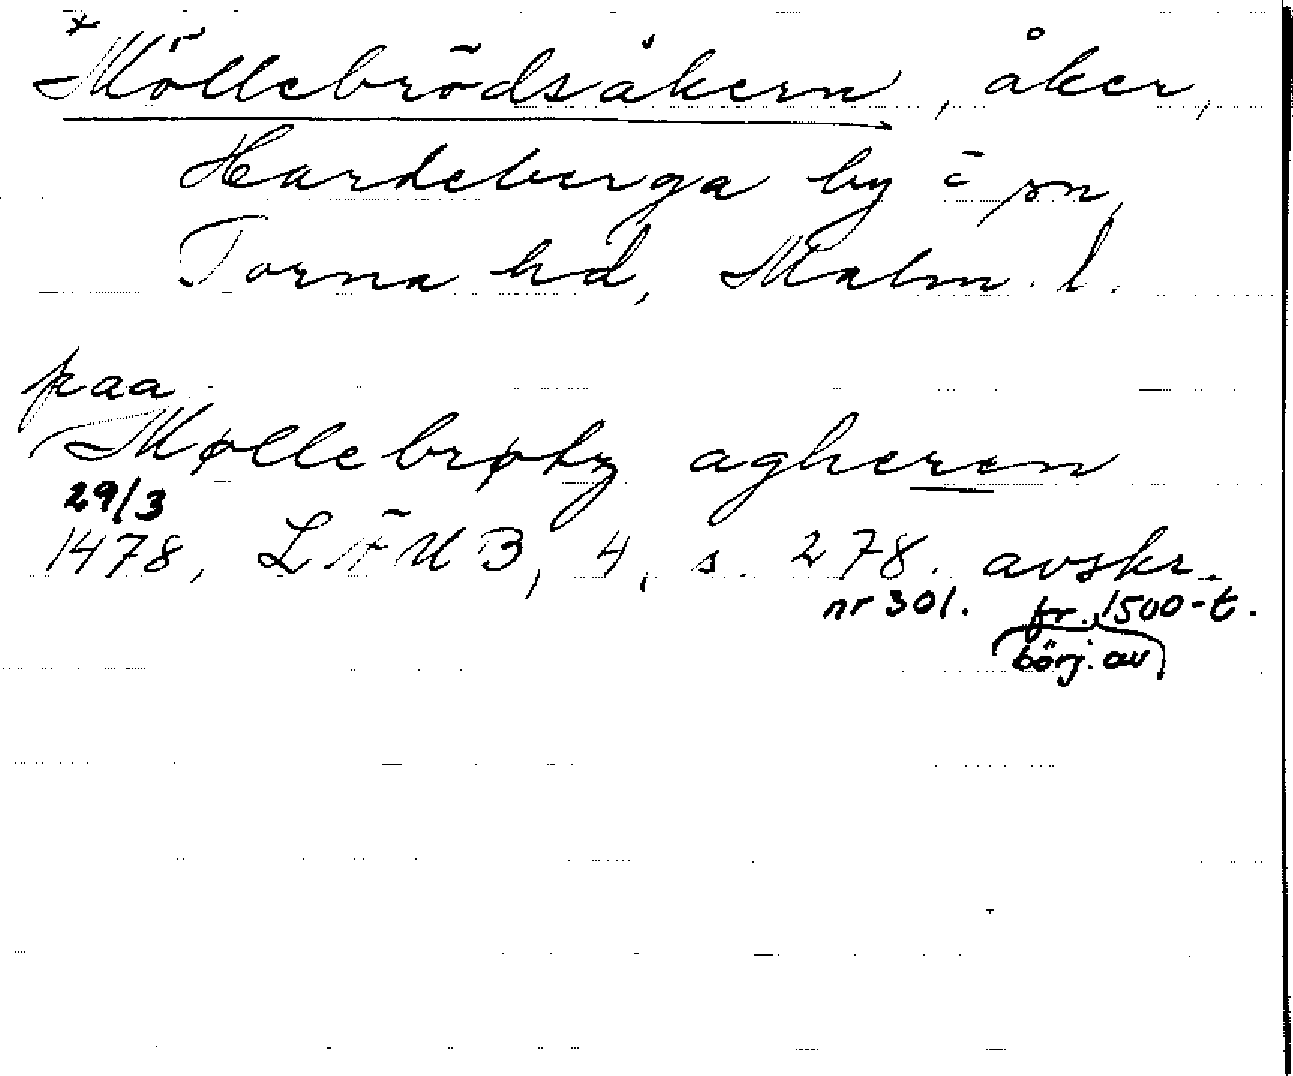 * Möllebrödsåkern, åker,
Hardeberga by o sn,
Torna hd, Malm. l.
paa
Møllebrødz agheren
29/3
1478, LÄUB, 4, s. 278. avskr.
nr 301. fr. 1500-t.
börj. av